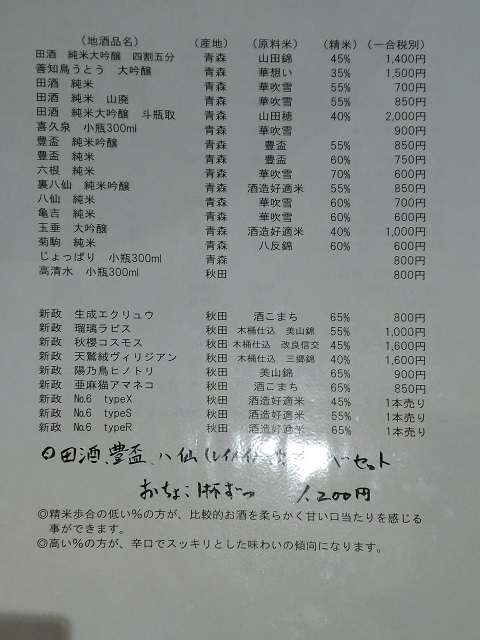 (地酒品名) (産地) (原料米) (精米) (一合税別)
田酒 純米大吟醸 四割五分 青森 山田錦 45% 1,400円
善知鳥うとう 大吟醸 青森 華想い 35% 1,500円
田酒 純米 青森 華吹雪 55% 700円
田酒 純米 山廃 青森 華吹雪 55% 850円
田酒 純米大吟醸 斗瓶取 青森 山田穂 40% 2,000円
喜久泉 小瓶300ml 青森 華吹雪 900円
豊盃 純米吟醸 青森 豊盃 55% 850円
豊盃 純米 青森 豊盃 60% 750円
六根 純米 青森 華吹雪 70% 600円
裏八仙 純米吟醸 青森 酒造好適米 55% 850円
八仙 純米 青森 華吹雪 60% 700円
亀吉 純米 青森 華吹雪 60% 600円
玉垂 大吟醸 青森 酒造好適米 40% 1,000円
菊駒 純米 青森 八反錦 60% 600円
じょっぱり 小瓶300ml 青森 800円
高清水 小瓶300ml 秋田 800円
新政 生成エクリュウ 秋田 酒こまち 65% 800円
新政 瑠璃ラピス 秋田 木桶仕込 美山錦 55% 1,000円
新政 秋櫻コスモス 秋田 木桶仕込 改良信交 45% 1,600円
新政 天鵞絨ヴィリジアン 秋田 木桶仕込 三郷錦 40% 1,600円
新政 陽乃鳥ヒノトリ 秋田 美山錦 65% 900円
新政 亜麻猫アマネコ 秋田 酒こまち 65% 850円
新政 No.6 typeX 秋田 酒造好適米 45% 1本売り
新政 No.6 typeS 秋田 酒造好適米 55% 1本売り
新政 No.6 typeR 秋田 酒造好適米 65% 1本売り
○田酒、豊盃、八仙 べセット
おちょこ1杯ずつ 1,200円
◎精米歩合の低い%の方が、比較的お酒を柔らかく甘い口当たりを感じる
事ができます。
◎高い%の方が、辛口でスッキリとした味わいの傾向になります。